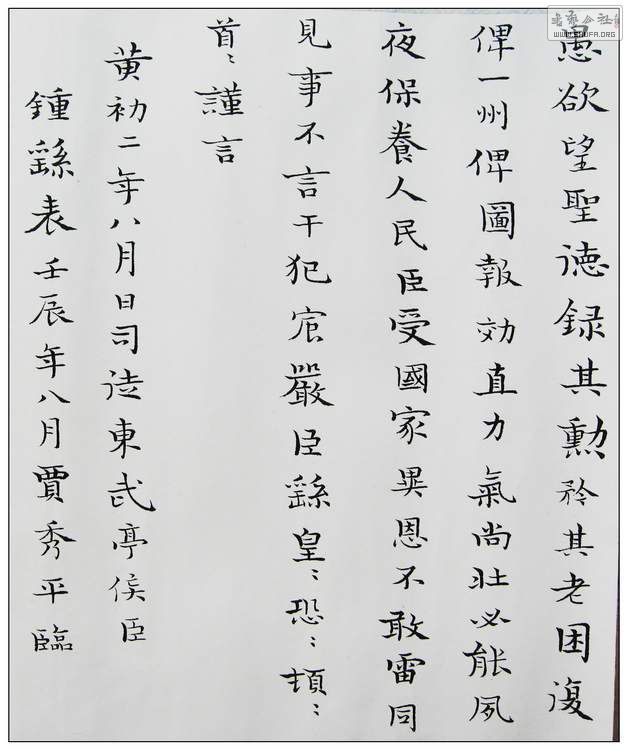 愚欲望聖徳録其勲矜其老困復
俾一州俾圖報効直力氣尚壮必能夙
夜保養人民臣受國家異恩不敢雷同
見事不言干犯宸嚴臣繇皇〻恐〻頓〻
首〻謹言
黃初二年八月日司徒東武亭侯臣
鍾繇表壬辰年八月賈秀平臨
WWW.SHUFA.ORG